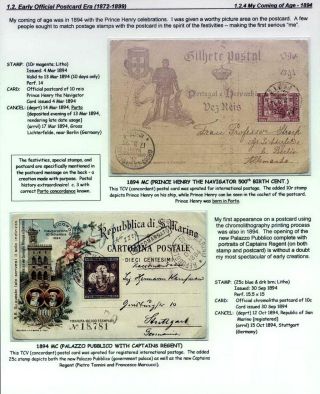 1.2. Early Official Postcard Era (1872-1899)
1.2.4 My Coming of Age - 1894
My coming of age was in 1894 with the Prince Henry celebrations. I was given a worthy picture area on the postcard. A few
people sought to match postage stamps with the postcard in the spirit of the festivities – making the first serious "me".
STAMP: (10r magenta; Litho)
Issued 4 Mar 1894
Valid to 13 Mar 1894 (10 days only)
Perf. 14
CARD: Official postcard of 10 reis
Prince Henry the Navigator
Card issued 4 Mar 1894
CANCEL: (depart) 14 Mar 1894, Porto
(deposited evening of 13 Mar 1894,
rendering late date usage)
(arrvl) 17 Mar 1894, Gross
Lichterfelde, near Berlin (Germany)
The festivities, special stamp, and
postcard are specifically mentioned in
the postcard message on the back - a
creation made with purpose. Postal
history extraordinaire! c. 3 with
correct Porto concordance known.
Bilhete Postal
Portugal e
Dez Reis
Allemanha
1894 MC (PRINCE HENRY THE NAVIGATOR 500th BIRTH CENT.)
This TCV (concordant) postal card was uprated for international postage. The added 10r stamp
depicts Prince Henry on his ship, which Prince Henry can be seen in the cachet of the postcard.
Prince Henry was born in Porto.
Repubblica di S. Marino
CARTOLINA POSTALE
DIECI CENTESIMI
No 18781
Stuttgart
Germania
My first appearance on a postcard using
the chromolithography printing process
was also in 1894. The opening of the
new Palazzo Pubblico complete with
portraits of Captains Regent (on both
stamp and postcard) is without a doubt
my most spectacular of this early era.
STAMP: (25c blue & drk brn; Litho)
Issued 30 Sep 1894
Perf. 15.5 x 15
CARD: Official chromolitho postcard of 10c
Card issued 30 Sep 1894
CANCEL: (dept) 12 Oct 1894, Republic of
San Marino [registered]
(arrvl) 15 Oct 1894, Stuttgart
(Germany)
1894 MC (PALAZZO PUBBLICO WITH CAPTAINS REGENT)
This TCV (concordant) postal card was uprated for registered international postage. The added
25c stamp depicts both the new Palazzo Pubblico (government palace) as well as the new Captains
Regent (Pietro Tonnini and Francesco Marcucci).